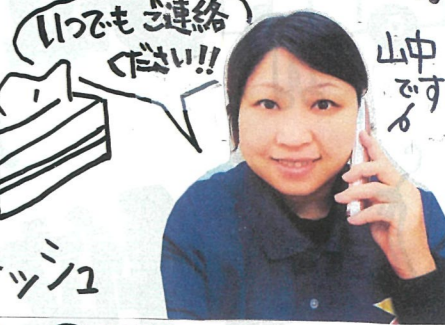 いつでも ご連絡
ください!!
山中
です
ッシュ